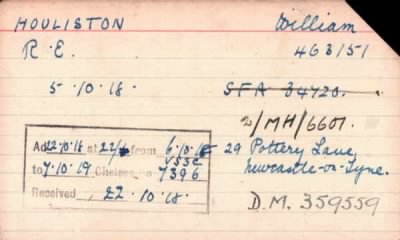 HOULISTON William
R.E. 463151
5.10.18. SFA 34720.
2/MH/6601.
Ad 22.10.18 at 22/ from 6.10.18
to 7.10.19 Chelsea No 7396
Received 22.10.18.
29 Pottery Lane,
Newcastle-on-Tyne.
D.M. 359559